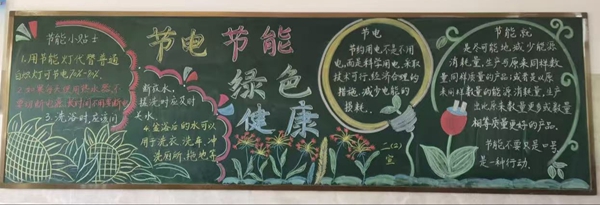 节能小贴士
1.用节能灯代替普通
白炽灯可节电
3.洗浴时,应该间
断放水,
搓洗时应及时
关水。
4.盆浴后的水可以
用于洗衣、洗车、冲
洗厕所、拖地等
节电 节能
绿色
健康
节电
节约用电不是不用
电,而是科学用电,采取
技术可行、经济合理的
措施,减少电能的
损耗。
二(2)
宣
节能就
是尽可能地减少能源
消耗量,生产与原来同样数
量同样质量的产品;或者是以原
来同样数量的能源消耗量,生产
出比原来数量更多或数量
相等质量更好的产品。
节能不要只是口号,
是一种行动。